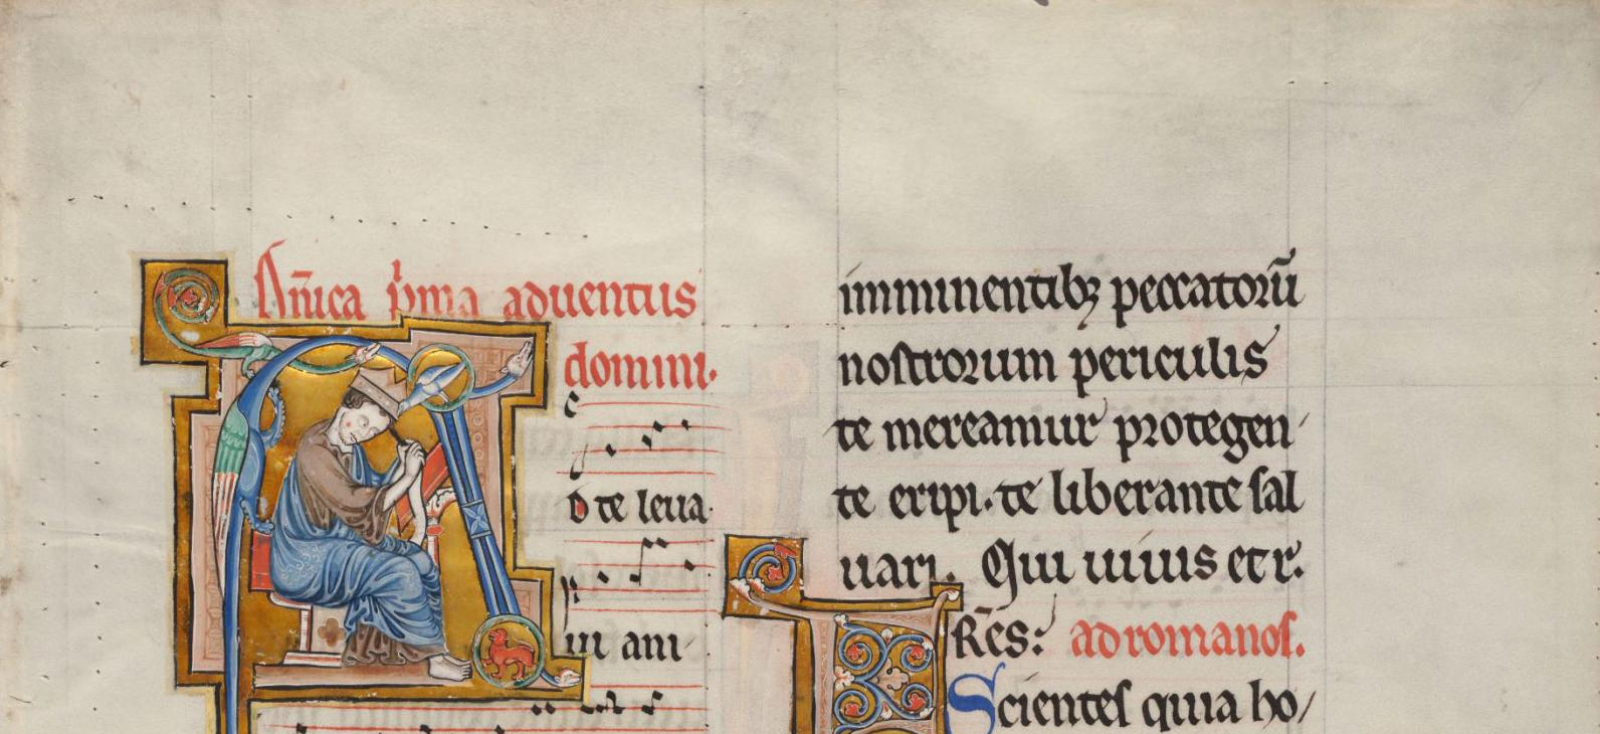 Dñica p̃ma aduentus
domini.
D te leua
ui ani
imminentibꝫ peccatorū
nostrorum periculis
te mereamur protegen
te eripi. te liberante sal
uari. Qui uiuis et r̃.
Fr̃es: ad romanos.
Scientes quia ho/